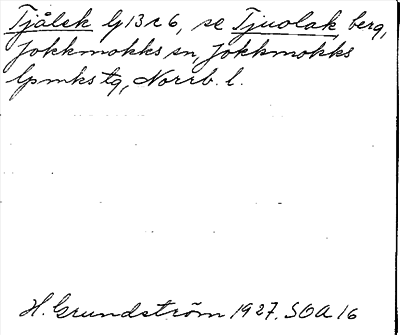 Tjålek lj 13 r 6, se Tjuolak, berg,
Jokkmokks sn, Jokkmokks
lpmks tg, Norrb. l.
H. Grundström 1927. SOA 16